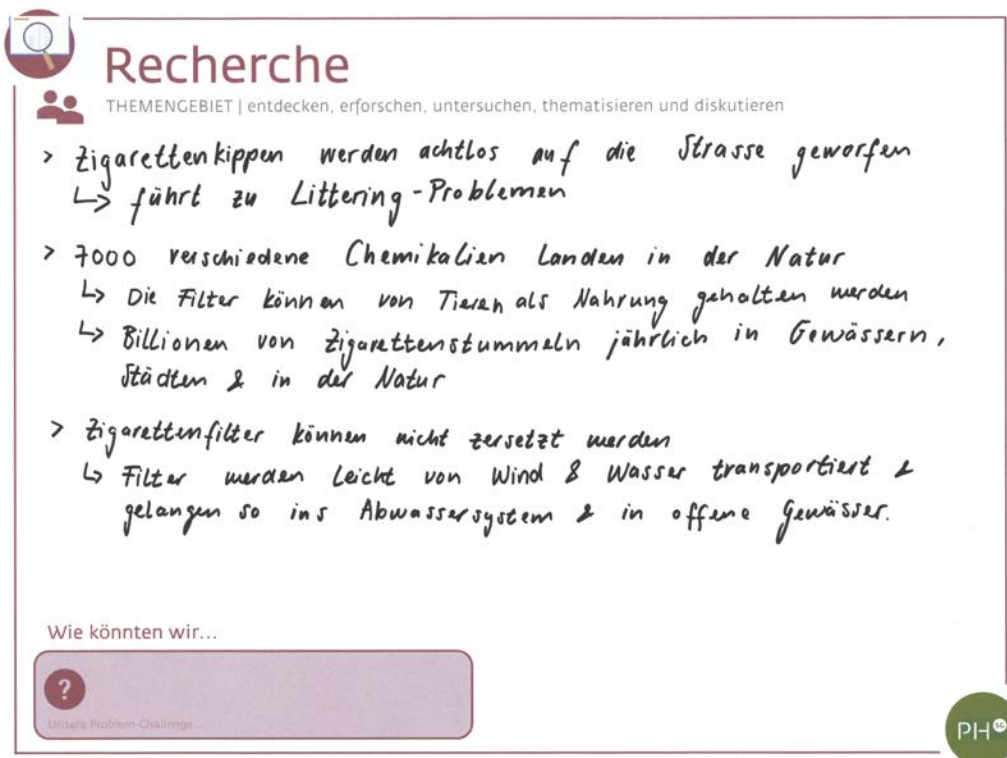 Recherche
THEMENGEBIET | entdecken, erforschen, untersuchen, thematisieren und diskutieren
> Zigarettenkippen werden achtlos auf die Strasse geworfen
↳ führt zu Littering-Problemen
> 7000 verschiedene Chemikalien Landen in der Natur
↳ Die Filter können von Tieren als Nahrung gehalten werden
↳ Billionen von Zigarettenstummeln jährlich in Gewässern,
Städten & in der Natur
> Zigarettenfilter können nicht zersetzt werden
↳ Filter werden Leicht von Wind & Wasser transportiert &
gelangen so ins Abwassersystem & in offene Gewässer.
Wie könnten wir...
?
Unsere Problem-Challenge...
PH SG